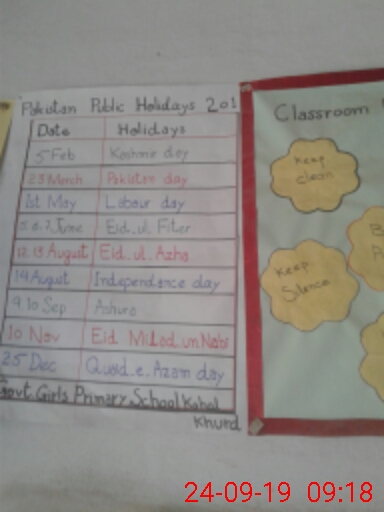 Pakistan Public Holidays 201
Date Holidays
5 Feb Kashmir day
23 March Pakistan day
1st May Labour day
5.6.7 June Eid.ul.Fiter
12.13 August Eid.ul.Azha
14 August Independence day
9 10 Sep Ashura
10 Nov Eid Milad un Nabi
25 Dec Quaid.e.Azam day
Govt. Girls Primary School Kahal
Khurd
Classroom
Keep
clean
Keep
Silence
24-09-19 09:18